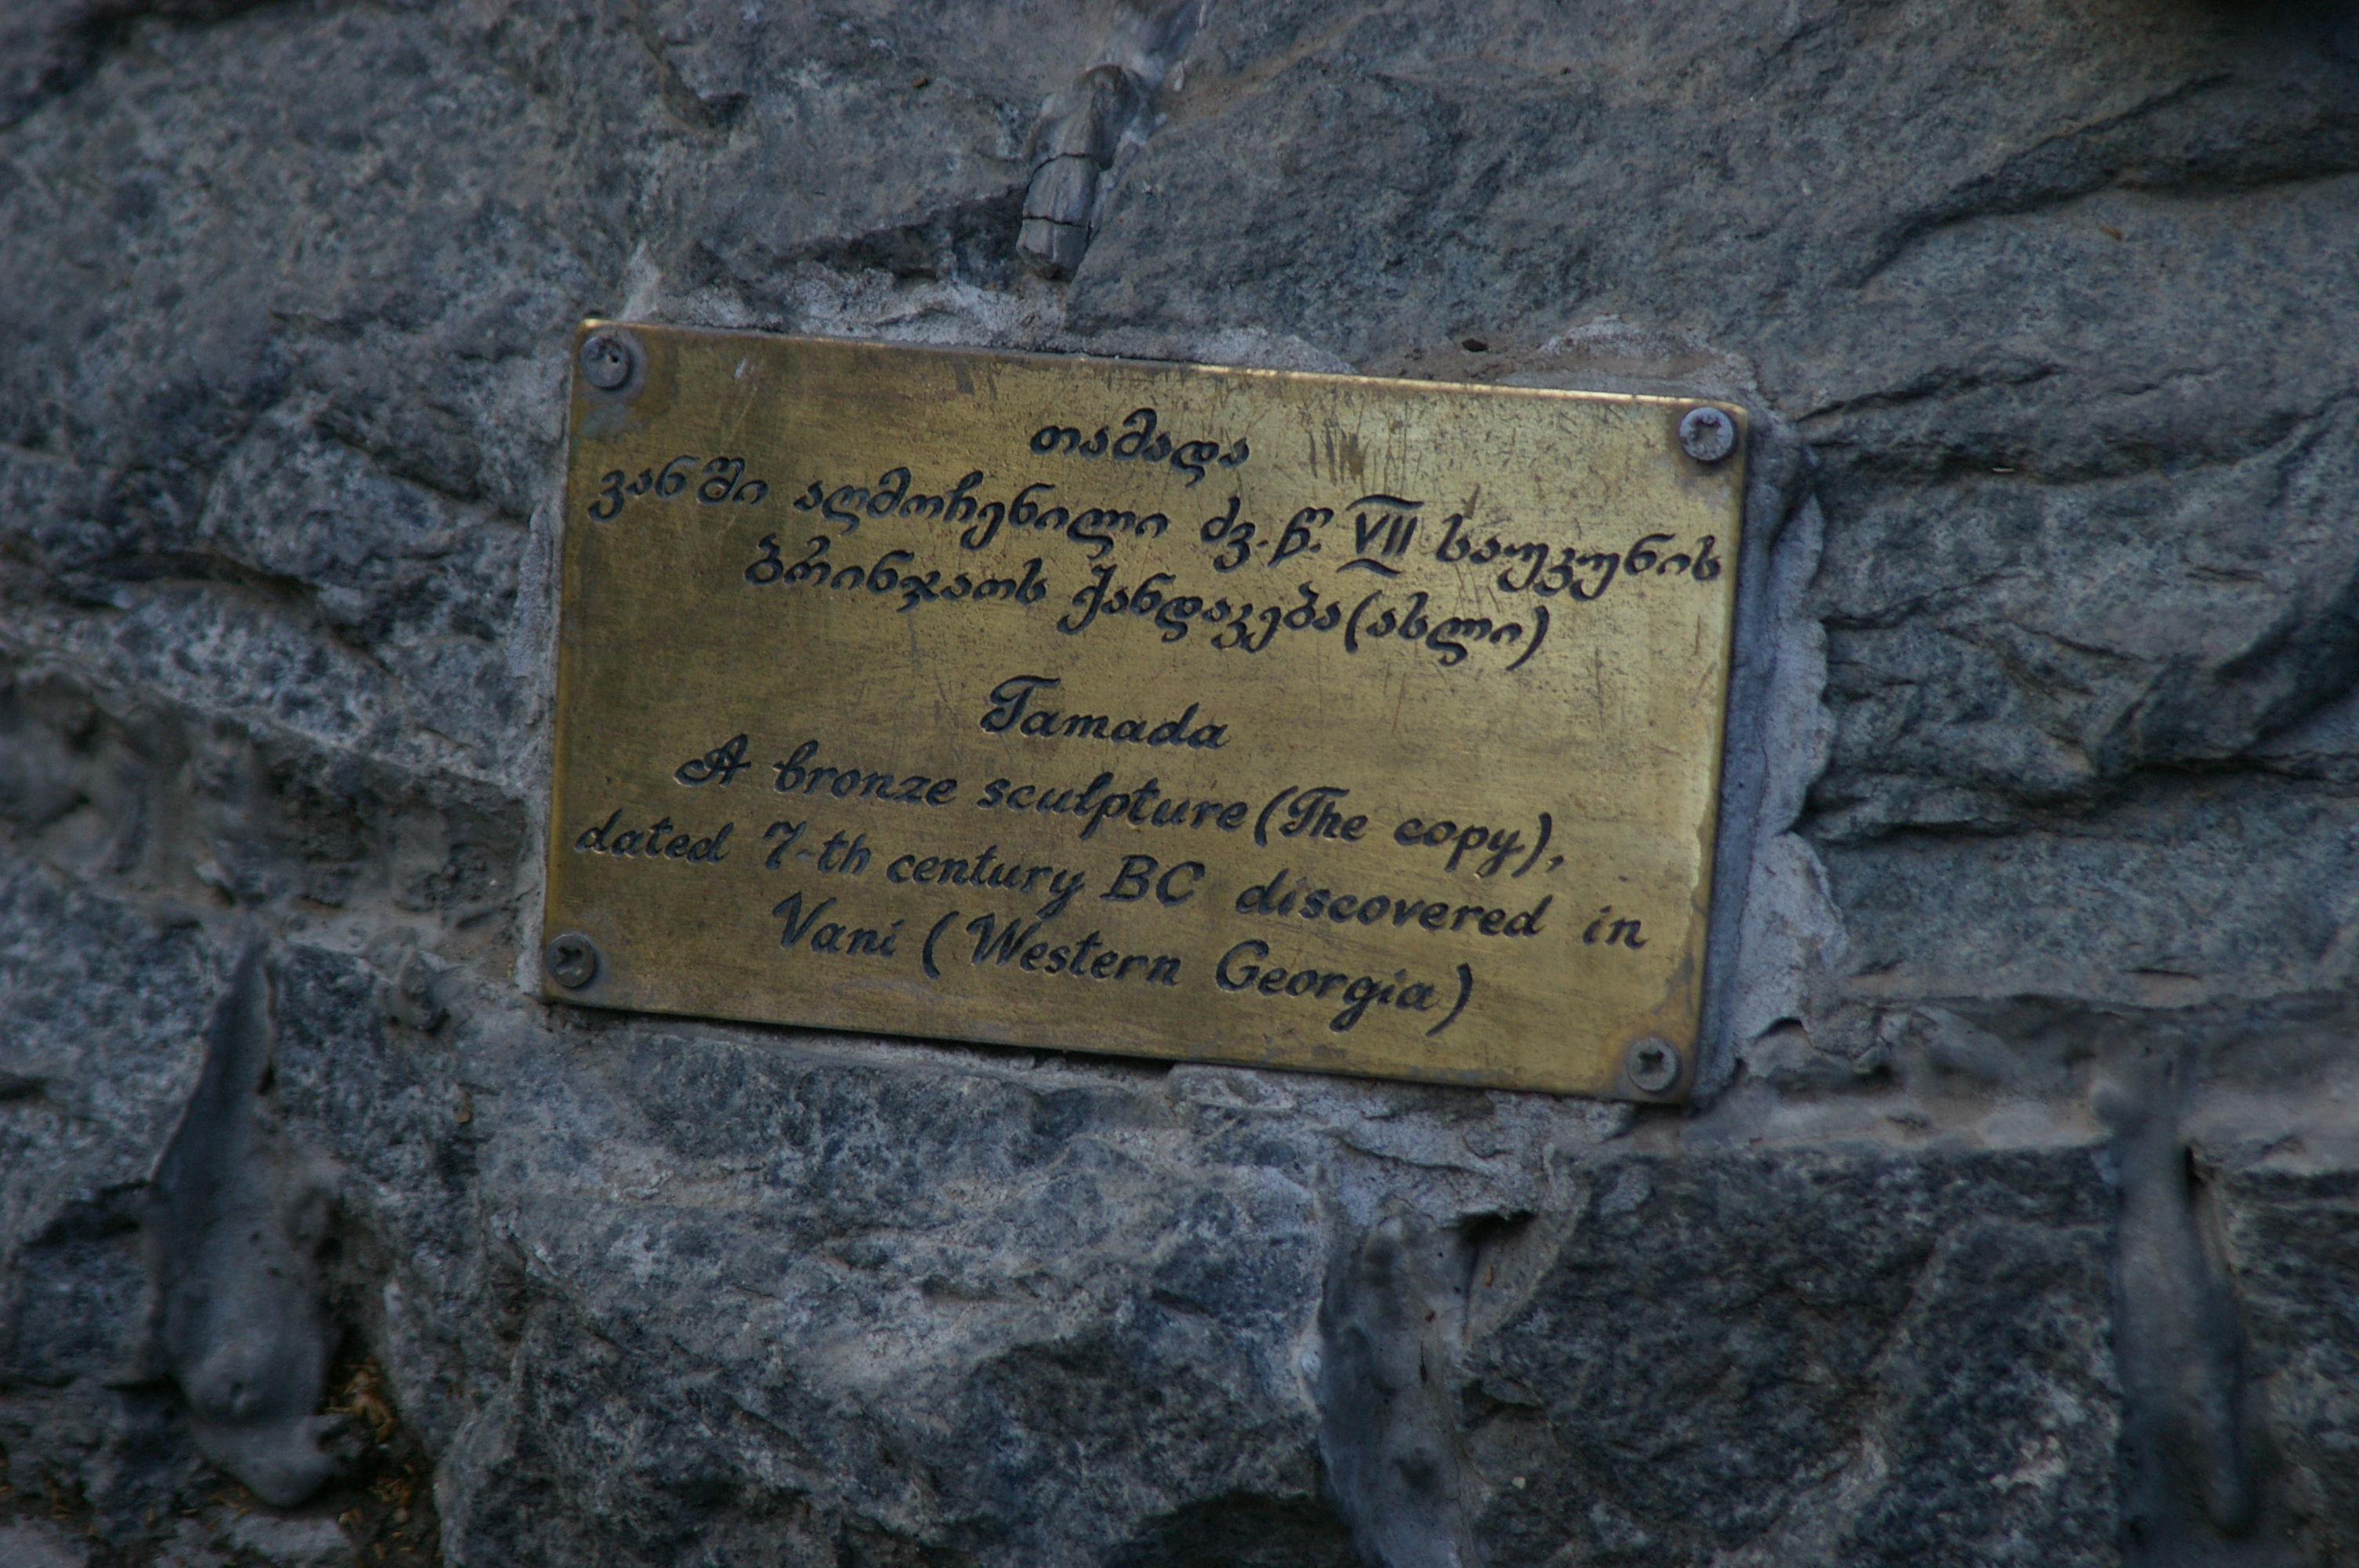 თამადა
ვანში აღმოჩენილი ძვ.წ. VII საუკუნის
ბრინჯაოს ქანდაკება(ასლი)
Tamada
A bronze sculpture (The copy),
dated 7-th century BC discovered in
Vani ( Western Georgia)